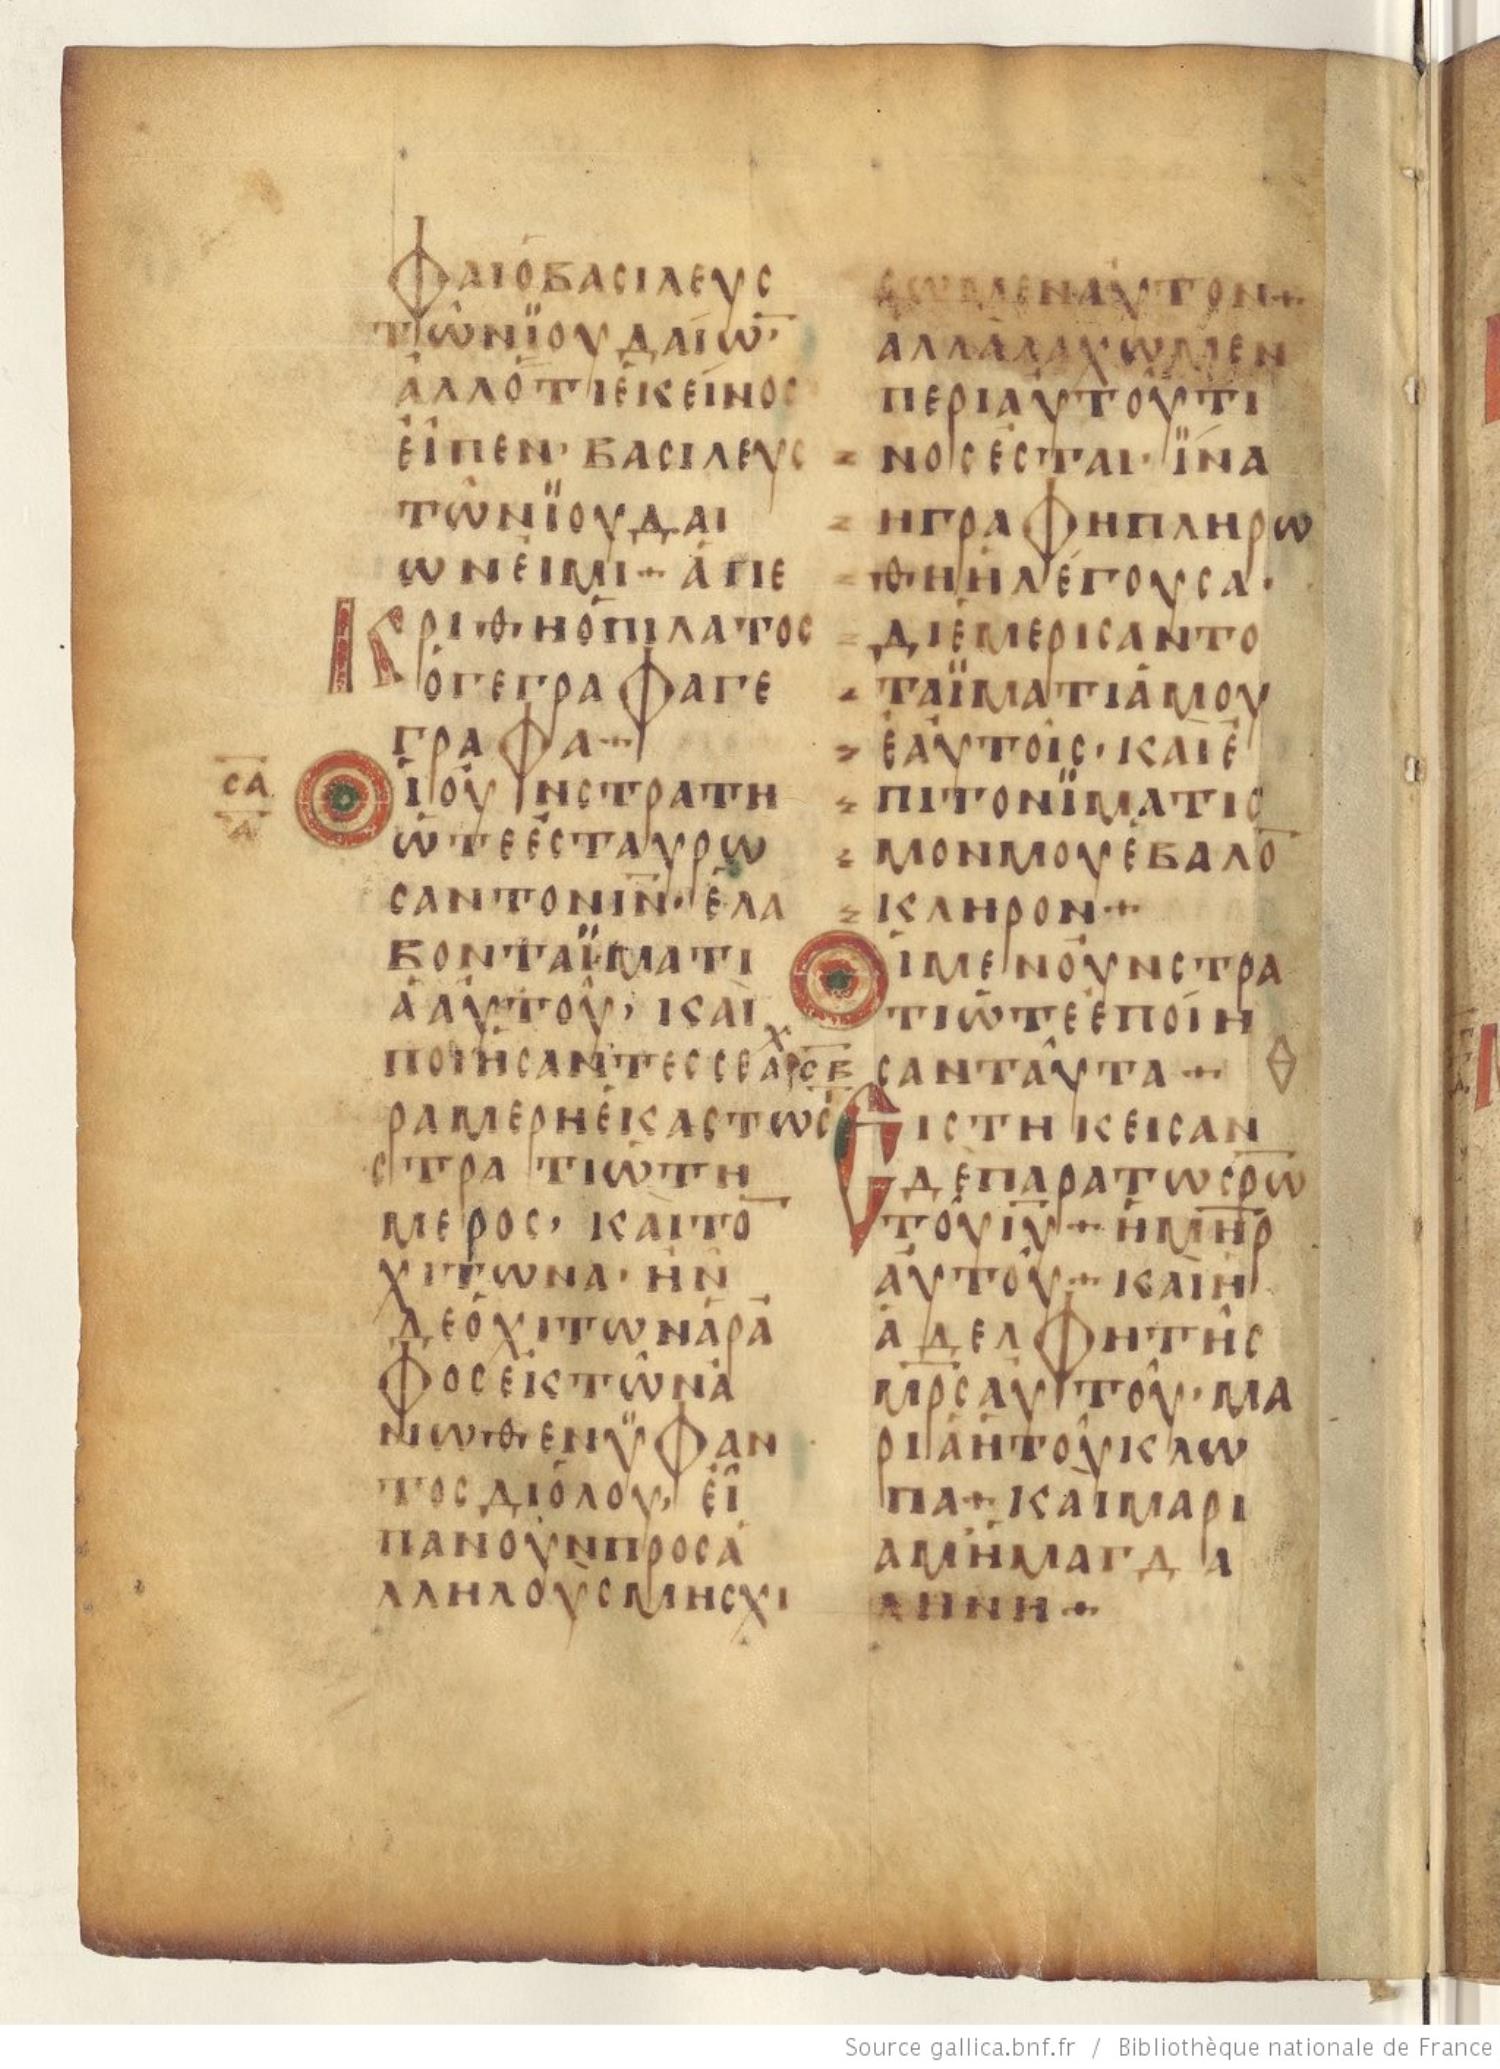 φαιόβασιλευς
τῶνϊουδαίω̅·
ἀλλότιἐκεῖνος
εἶπεν· βασιλευς
τῶνϊουδαι
ωνεἰμι+ ἀπε
κριθηὁπιλατος
ὁγεγραφαγε
γραφα+
σα
α
Οἱοὖνστρατη
ῶτεεσταυρω
σαντονι̅ν̅· ἐλα
βονταϊματι
ααὐτοῦ, καὶ
ποιήσαντεςσεα
χ
ραμερηἑκαστως
στρατιῶτη
μερος, καὶτο̅
χιτωνα· ἦν
δεὁχιτωνάρα
φοσἐκτῶνἀ
νωθενϋφαν
τοςδιὅλου, εἶ
πανοῦνπροσἀ
λληλοὺσμησχι
σωμεναὐτον+
ἀλλαλαχωμεν
περιαὐτοῦτι
νοσἐσται· ἵνα
ηγραφηπληρω
θηἡλέγουσα·
διεμερισαντο
ταϊματιάμου
ἑαυτοῖς, καὶἐ
πιτονϊματισ
μονμουἐβαλο̅
κληρον+
Οἱμενοὖνστρα
τιῶτεἐποίη
σ̅β̅
σανταῦτα+
Εἱστηκεισαν
δὲπαρατωσρ̅ω̅
τοῦι̅υ̅+ ἡμ̅η̅ρ̅
αὐτοῦ+ καὶἡ
ἀδελφητῆς
μ̅ρ̅σαὐτοῦ· μα
ριάἡτοῦκλω
πα+ καὶμαρι
αμἡμαγδα
ληνη+
Source gallica.bnf.fr / Bibliothèque nationale de France